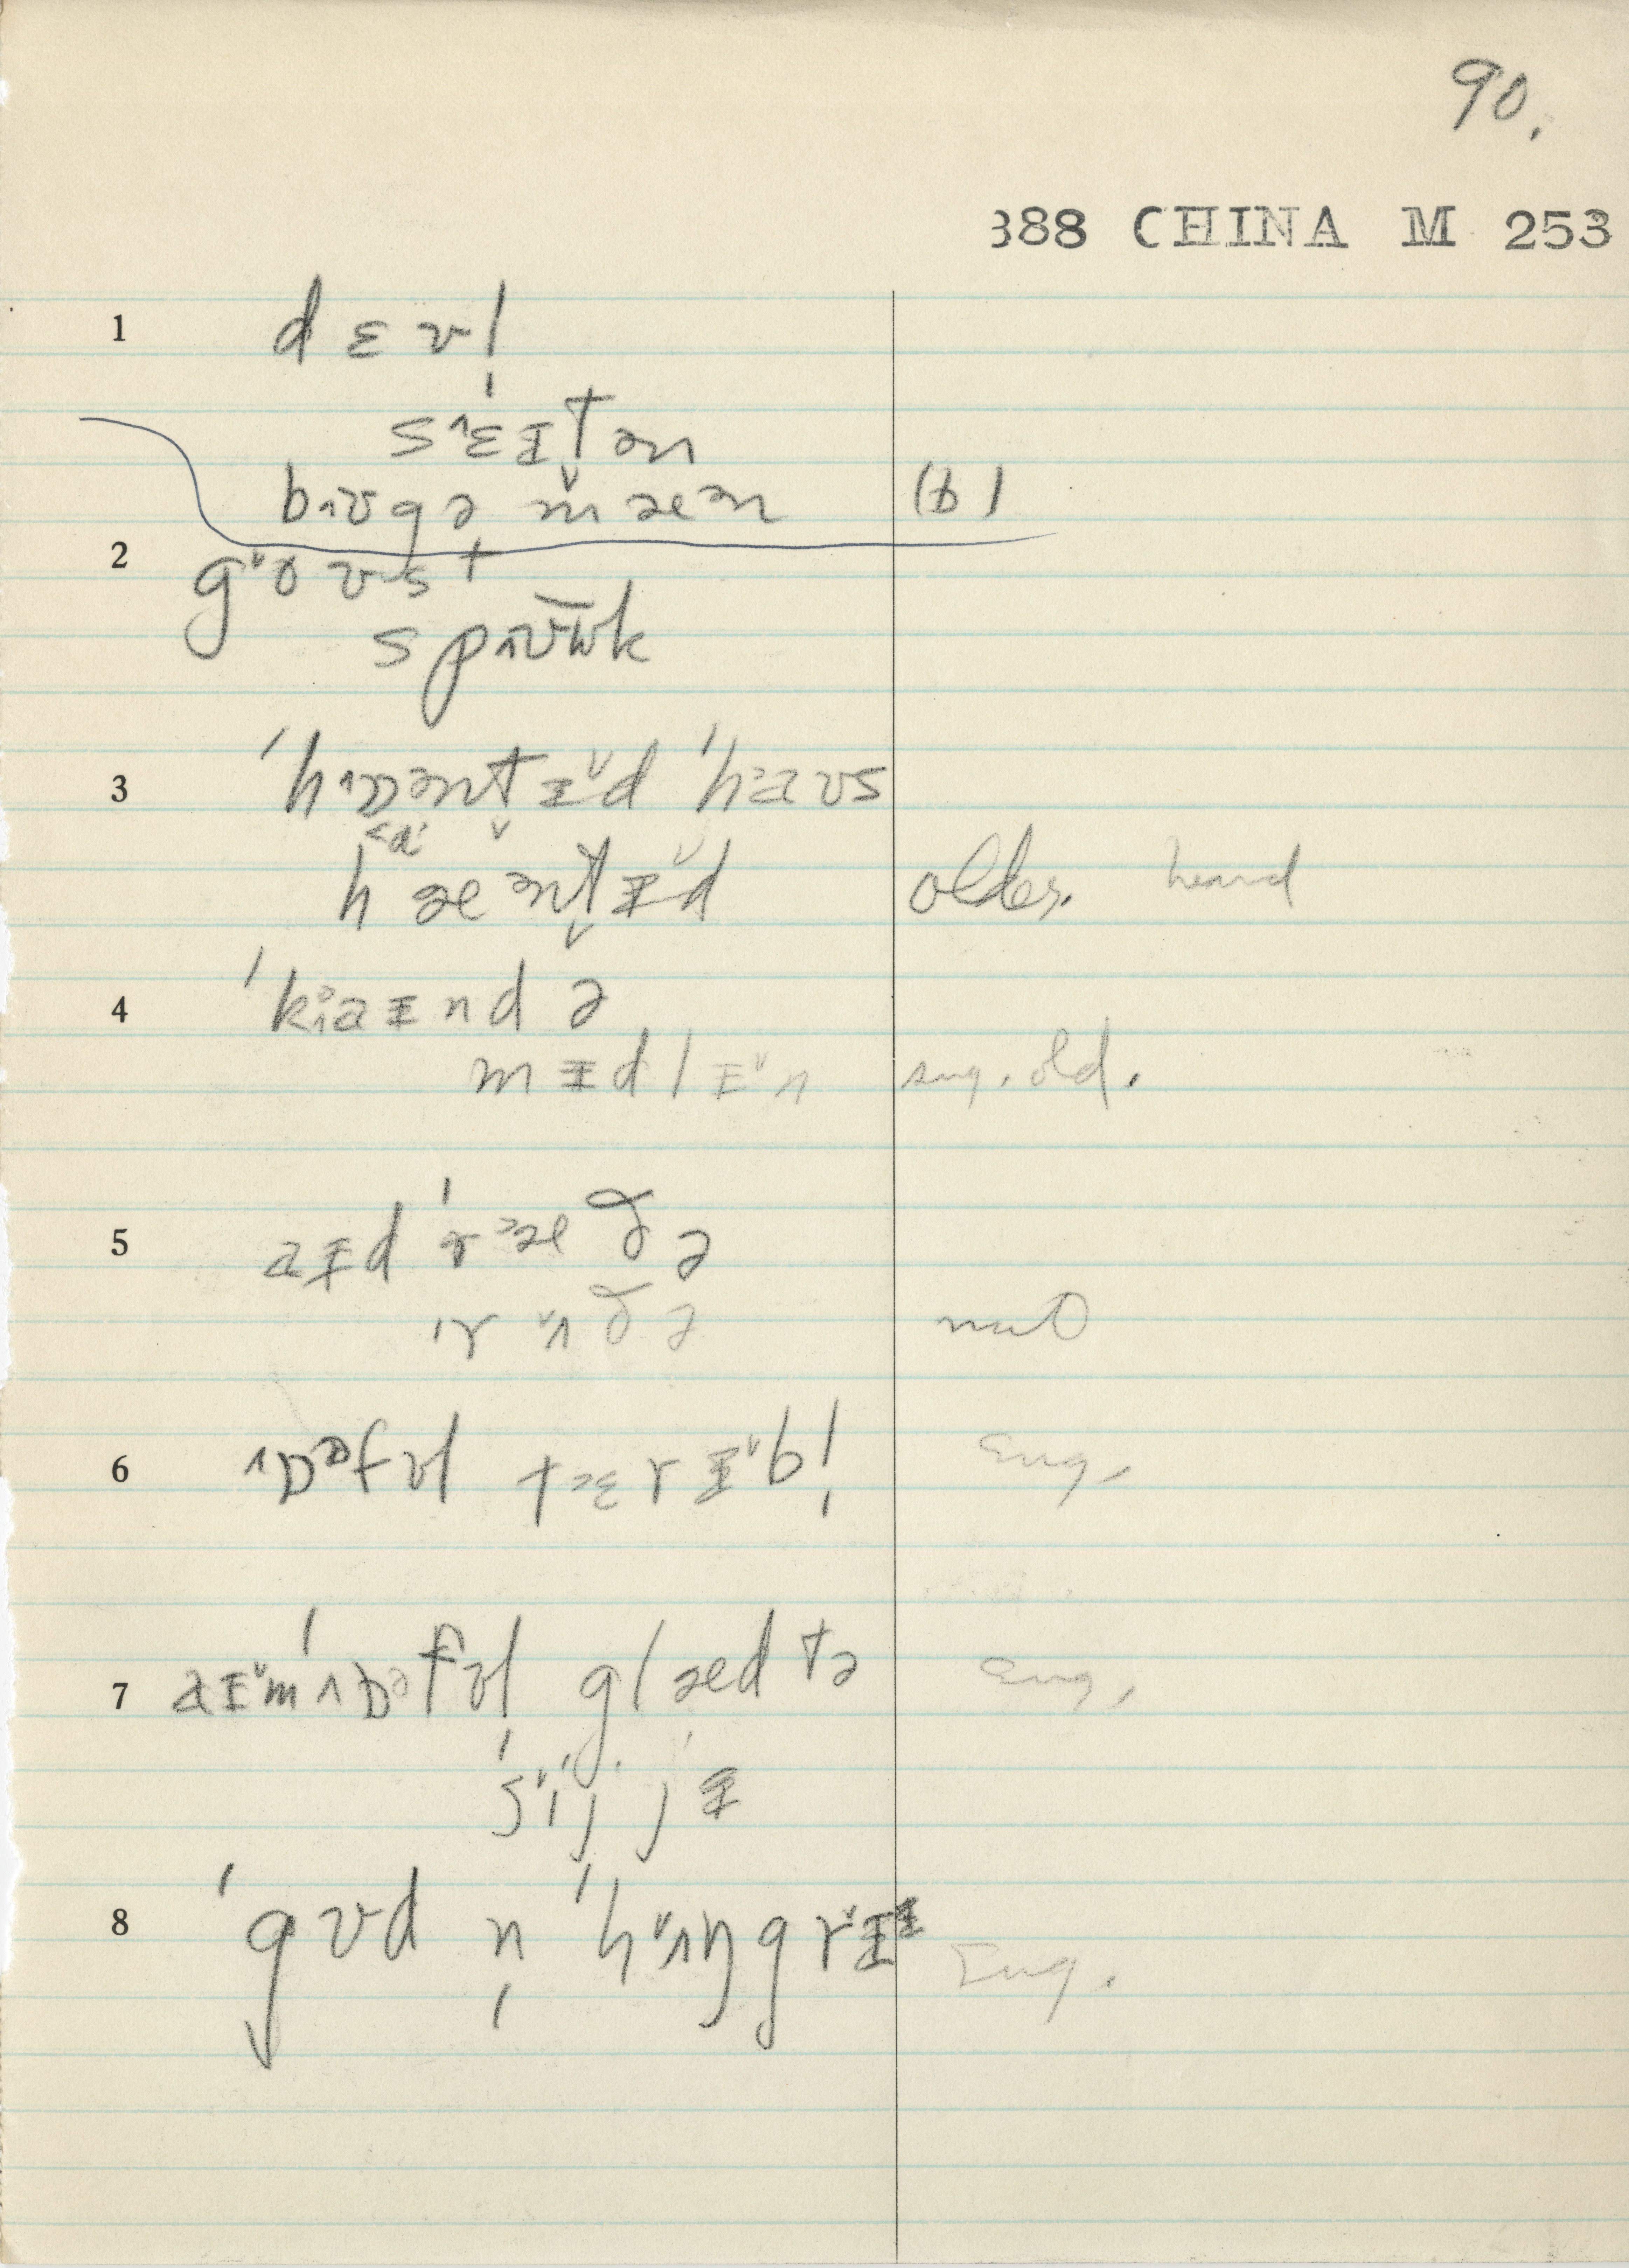 90.
388 CHINA M 253
1 dɛvl̩
sˈɛɪtən
bʊgə mæn (b)
2 goʊst
spʊuk
3 ˈhɒəntɪd ˈhaʊs
hæəntɪd older. heard
4 ˈkaɪndə
mɪdlɪn sug. old.
5 aɪd ˈræðə
ˈrʌðə nat
6 ɒəfʊl tɛrɪbl̩ Eng.
7 aɪm ˈɒəfʊl glæd tə Eng.
ˈsij jɪ
8 ˈgʊd n̩ ˈhʌŋgrɪɪ Eng.